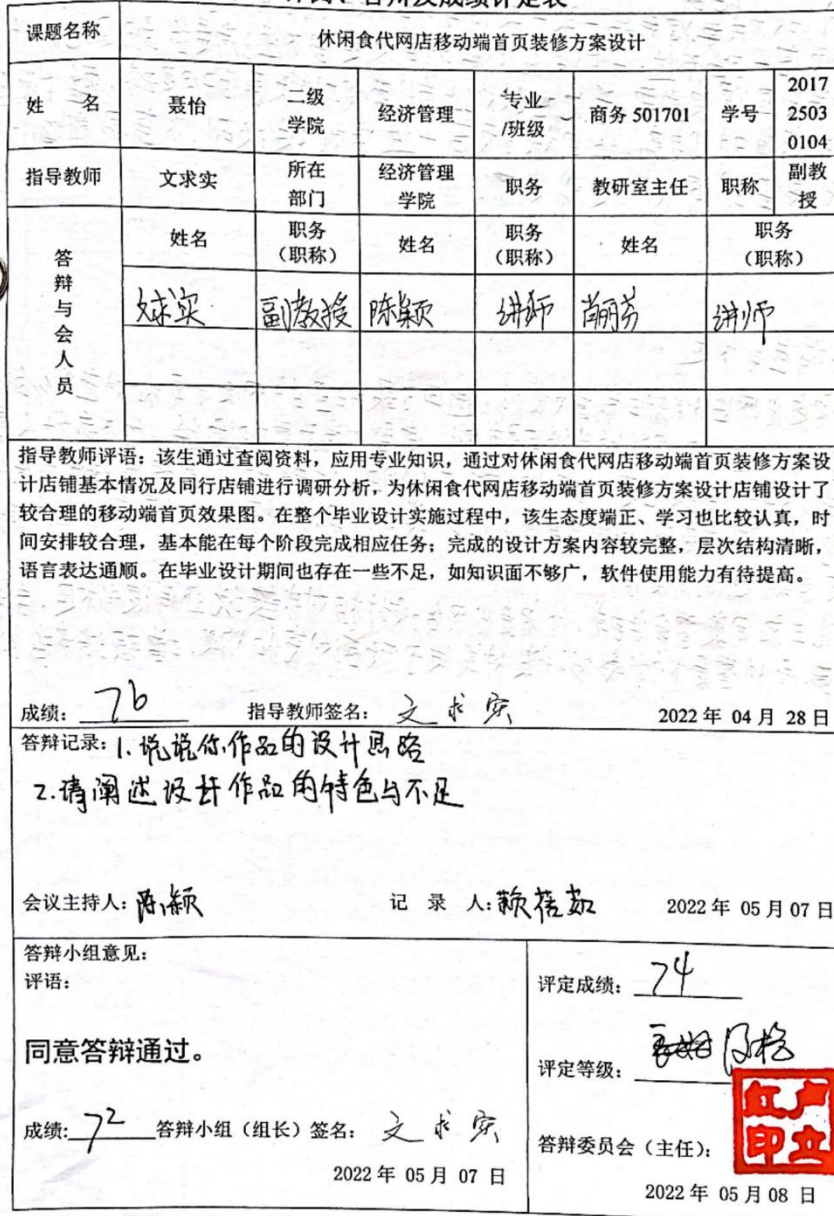 课题名称 休闲食代网店移动端首页装修方案设计
姓 名 聂怡 二级学院 经济管理 专业/班级 商务 501701 学号 2017 2503 0104
指导教师 文求实 所在部门 经济管理学院 职务 教研室主任 职称 副教授
答辩与会人员 姓名 职务（职称） 姓名 职务（职称） 姓名 职务（职称）
文求实 副教授 陈颖 讲师 肖丽芬 讲师
指导教师评语：该生通过查阅资料，应用专业知识，通过对休闲食代网店移动端首页装修方案设
计店铺基本情况及同行店铺进行调研分析，为休闲食代网店移动端首页装修方案设计店铺设计了
较合理的移动端首页效果图。在整个毕业设计实施过程中，该生态度端正、学习也比较认真，时
间安排较合理，基本能在每个阶段完成相应任务；完成的设计方案内容较完整，层次结构清晰，
语言表达通顺。在毕业设计期间也存在一些不足，如知识面不够广，软件使用能力有待提高。
成绩： 76 指导教师签名： 文求实 2022 年 04 月 28 日
答辩记录：1.说说你作品的设计思路
2.请阐述设计作品的特色与不足
会议主持人：陈颖 记 录 人：赖蓓茹 2022 年 05 月 07 日
答辩小组意见：
评语：
同意答辩通过。
成绩: 72 答辩小组（组长）签名： 文求实
2022 年 05 月 07 日
评定成绩： 74
评定等级： 及格
答辩委员会（主任）：
卢立红印
2022 年 05 月 08 日